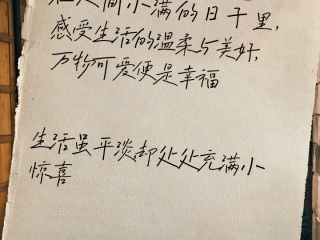 在人间小满的日子里,
感受生活的温柔与美好,
万物可爱便是幸福
生活虽平淡却处处充满小
惊喜